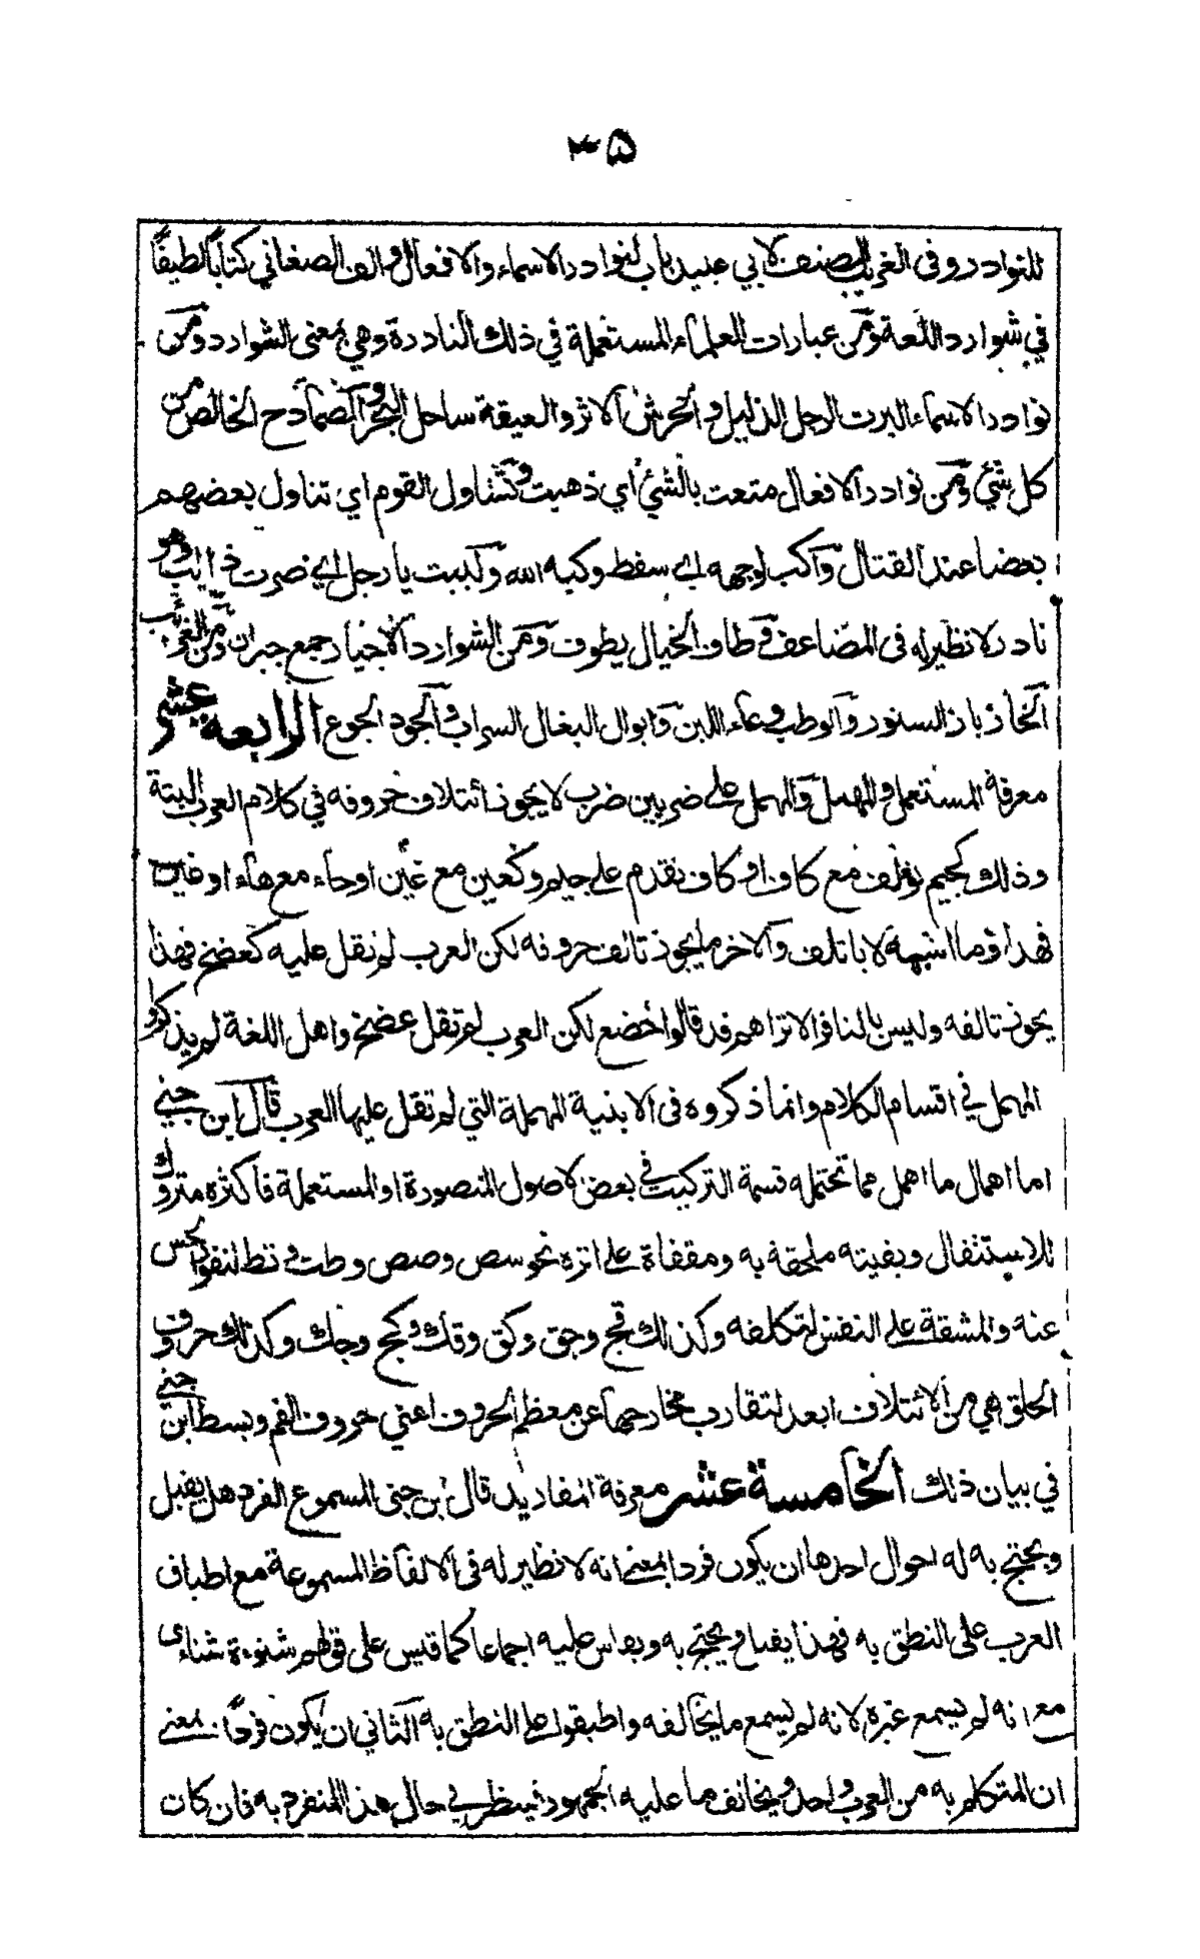 ٣٥
للنوادر وفى الغريب المصنف لابي عبيد باب لنوادر الاسماء والافعال والف الصغاني كتابًا لطيفًا
في شوارد اللغة ومن عبارات العلماء المستعملة في ذلك النادرة وهي بمعنى الشوارد ومن
نوادر الاسماء البرت الرجل الدليل والحرش الاثر والعيقة ساحل البحر والصمادح الخالص من
كل شئ ومن نوادر الافعال متعت بالشئ أي ذهبت وتشاول القوم اي تناول بعضهم
بعضا عند القتال وآكب لوجهه اي سقط وكبه الله وكببت يا رجل اي ضرت ذا ... وهو
نادر لا نظير له فى المضاعف وطاف الخيال يطوف ومن الشوارد الاجيار جمع جبران ومن الغرائب
الخاز باز السنور والوطب وعاء اللبن وابوال البغال السراب والجود الجوع الرابعة عشر
معرفة المستعمل والمهمل والمهمل على ضربين ضرب لا يجوز ائتلاف حروفه في كلام العرب البتة
وذلك كجيم تؤلف مع كاف او كاف تقدم على جيم وكعين مع غين او حاء مع هاء او غين
فهذا وما اشبهه لا يأتلف والاخر ما يجوز تالف حروفه لكن العرب لم تقل عليه كعضخ فهذا
يجوز تالفه وليس بالنافر الا تراهم قد قالوا خضع لكن العرب لم تقل عضخ واهل اللغة لم يذكروا
المهمل في اقسام الكلام وانما ذكروه فى الابنية المهملة التي لم تقل عليها العرب قال ابن جني
اما اهمال ما اهمل مما تحتمله قسمة التركيب في بعض الاصول المتصورة او المستعملة فاكثره متروك
للاستثقال وبقيته ملحقة به ومقفاة على اثره نحو سص وصص وطت وتط لنفور الحس
عنه والمشقة على النفس لتكلفه وكذلك قج وجق وكق وقك وكج وجك وكذلك حروف
الحلق هي من الائتلاف ابعد لتقارب مخارجها عن معظم الحروف اعني حروف الفم وبسط ابن جني
في بيان ذلك الخامسة عشر معرفة المفاريد قال ابن جنى المسموع الفرد هل يقبل
ويحتج به له احوال احدها ان يكون فردا بمعنى انه لا نظير له فى الالفاظ المسموعة مع اطباق
العرب على النطق به فهذا يقبل ويحتج به ويقاس عليه اجماعا كما قيس على قولهم شنوءة شناءى
مع انه لم يسمع غيره لانه لم يسمع ما يخالفه واطبقوا على النطق به الثاني ان يكون فردًا بمعنى
ان المتكلم به من العرب واحد ويخالف ما عليه الجمهور فينظر في حال هذا المنفرد به فان كان